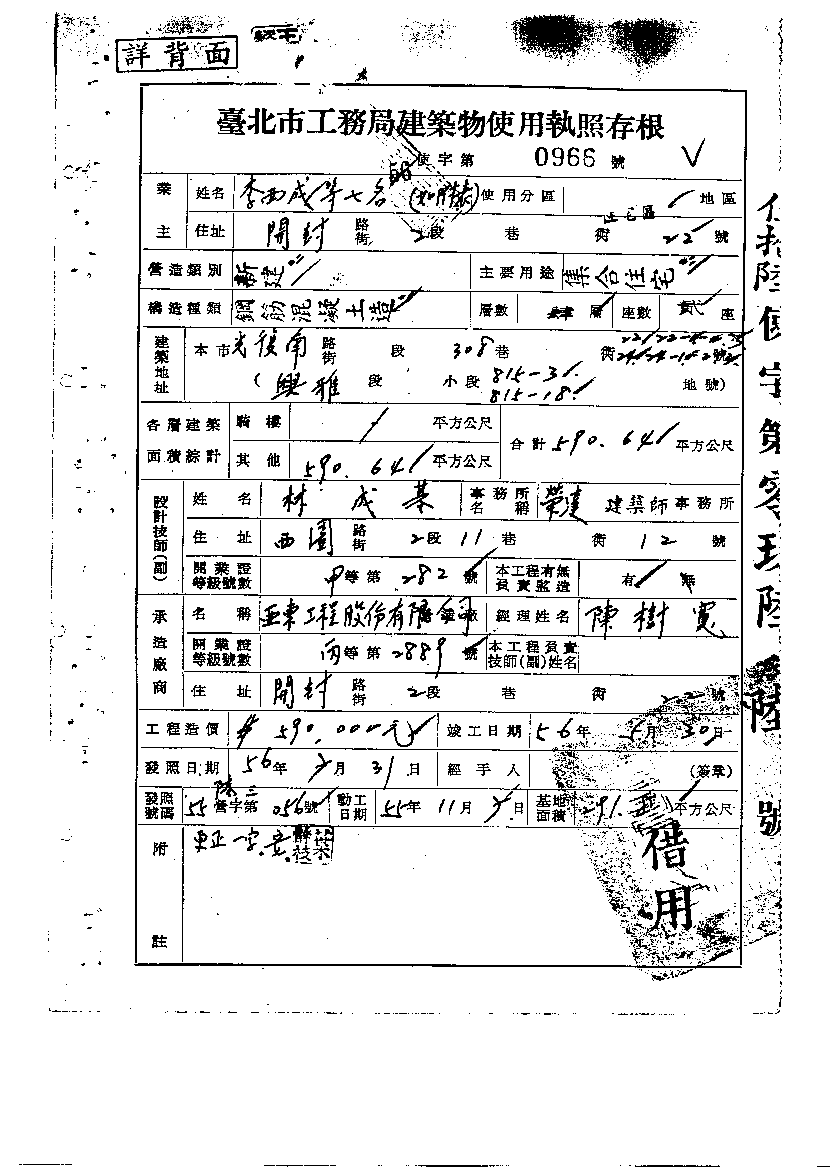 詳背面
臺北市工務局建築物使用執照存根
56使字第 0966 號
業主 姓名 李西成等七名 使用分區 住宅區 地區
住址 開封 路街 2段 巷 街 22號
營造類別 新建 主要用途 集合住宅
構造種類 鋼筋混凝土造 層數 層 座數 貳 座
建築地址 本市光復南 路街 段 308巷 街 號
(興雅 段 小段 815-31 815-18 地號)
各層建築面積綜計 騎樓 / 平方公尺 合計 590.641 平方公尺
其他 590.641 平方公尺
設計技師(副) 姓名 林成 事務所名稱 榮達 建築師事務所
住址 西園 路街 2段 11巷 街 12號
開業證等級號數 甲等第 282 號 本工程有無負責監造 有 無
承造廠商 名稱 亞東工程股份有限公司 經理姓名 陳樹寬
開業證等級號數 丙等第 2889 號 本工程負責技師(副)姓名
住址 開封 路街 2段 巷 街 22號
工程造價 $590,000元 竣工日期 56年 5月 30日
發照日期 56年 月 31日 經手人 (簽章)
發照號碼 55營字第 056 號 動工日期 55年 11月 日 基地面積 291. 平方公尺
附註 更正一字
借用
伍拾陸使字第零玖陸陸號